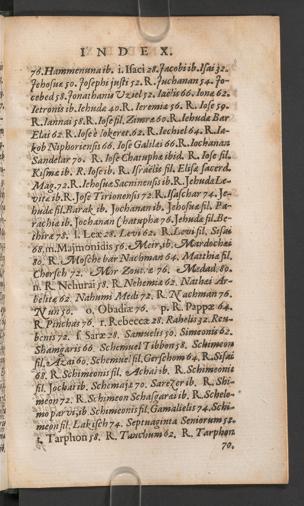 INDEX.
76. Hammenuna ib. i. Isaci 28. Jacobi ib. Isai 32.
Jehosuæ 50. Josephi justi 52. R. Juchanan 54. Jo-
cebed 58. Jonathanis Uziel 52. Iaëlis 66. Ionæ 62.
Ietronis ib. Iehudæ 40. R. Ieremiæ 56. R. Iose 59.
R. Iannai 58. R. Iose fil. Zimræ 60. R. Iehudæ Bar
Elai 62. R. Iosè è Iokeret 62. R. Iechiel 64. R. Ia-
kob Niphoriensis 66. Iose Galilæi 66. R. Iochanan
Sandelar 70. R. Iose Chatuphæ ibid. R. Iose fil.
Kismæ ib. R. Iose ib. R. Israëlis fil. Elisæ sacerd.
Mag. 72. R. Iehosuæ Sacninensis ib. R. Jehudæ Le-
vitæ ib. R. Jose Tirionensis 72. R. Isaschar 74. Je-
hudæ fil. Barak ib. Jochanan ib. Jehosuæ fil. Pa-
rachiæ ib. Jochanan Chatupha 76. Jehudæ fil. Be-
thiræ 71. l. Leæ 28. Levi 62. R. Levi fil. Sisai
68. m. Majmonidis 56. Meir ib. Mardochai
80. R. Mosche bar Nachman 64. Matthiæ fil.
Cheresch 72. Mor Zoutræ 76. Medad 80.
n. R. Nehurai 58. R. Nehemiæ 62. Nathæi Ar-
belitæ 62. Nahumi Medi 72. R. Nachman 76.
Nun 50. o. Obadiæ 76. p. R. Pappæ 64.
R. Pinchas 76. r. Rebeccæ 28. Rahelis 32. Reu-
benis 72. s. Saræ 28. Samuelis 50. Simeonis 62.
Shamgaris 66. Schemuel Tibben 58. Schimeon
fil. Azai 60. Schemuel fil. Gerschom 64. R. Sisai
68. R. Schimeonis fil. Achai ib. R. Schimeonis
fil. Jochai ib. Schemaja 70. Sarezer ib. R. Shi-
meon 72. R. Schimeon Schasgarai ib. R. Schelo-
mo parvi ib Schimeonis fil. Gamalielis 74. Schi-
meon fil. Lakisch 74. Septuaginta Seniorum 52.
t. Tarphon 58. R. Tanchum 62. R. Tarphon
70.